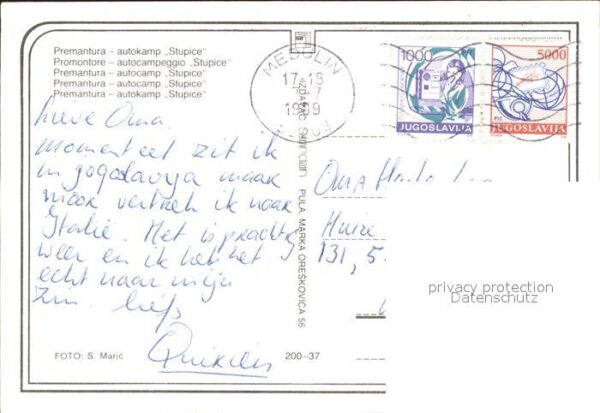 Premantura – autokamp „Stupice"
Promontore – autocampeggio „Stupice"
Premantura – autokamp „Stupice"
Premantura – autokamp „Stupice"
Premantura – autokamp „Stupice"
MEDULIN
17-18
7
1989
1000
JUGOSLAVIJA
5000
PTT JUGOSLAVIJA
Lieve Oma
momenteel zit ik
in jogoslavija maar
morgen vertrek ik naar
Italië. Het is prachtig
weer en ik heb het
echt naar mijn
zin. liefs
Oma
Huize
131, 5
PULA, MARKA OREŠKOVIĆA 56
privacy protection
Datenschutz
FOTO: S. Marić
200–37